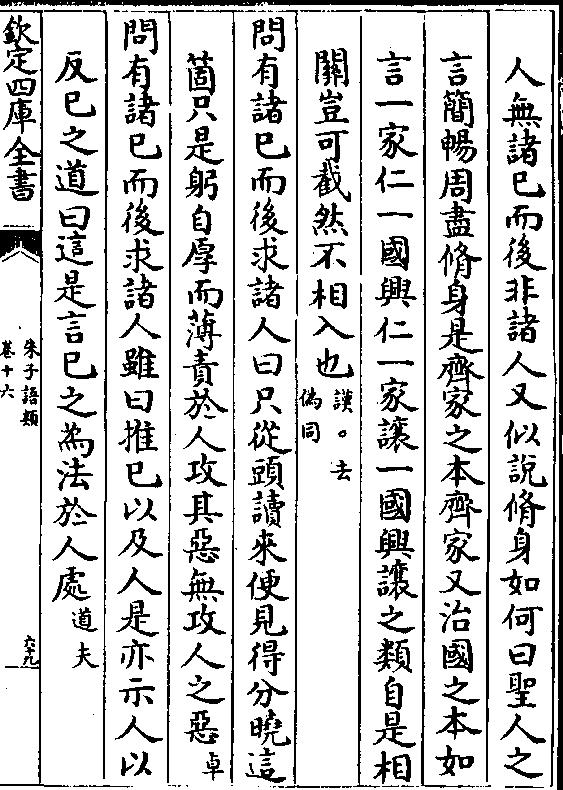 人無諸已而後非諸人又似說脩身如何曰聖人之
言簡暢周盡脩身是齊家之本齊家又治國之本如
言一家仁一國興仁一家讓一國興讓之類自是相
關豈可截然不相入也謨。去偽同
問有諸已而後求諸人曰只從頭讀來便見得分曉這
箇只是躬自厚而薄責於人攻其惡無攻人之惡卓
問有諸已而後求諸人雖曰推已以及人是亦示人以
反已之道曰這是言已之為法於人處道夫
欽定四庫全書
朱子語類
卷十六
六九